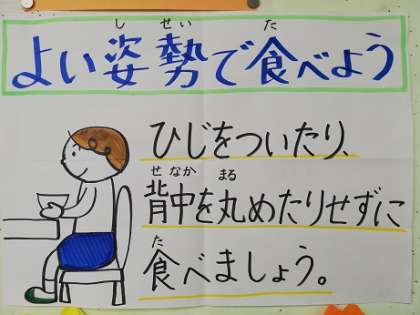 よい姿勢で食べよう
ひじをついたり、
背中を丸めたりせずに
食べましょう。